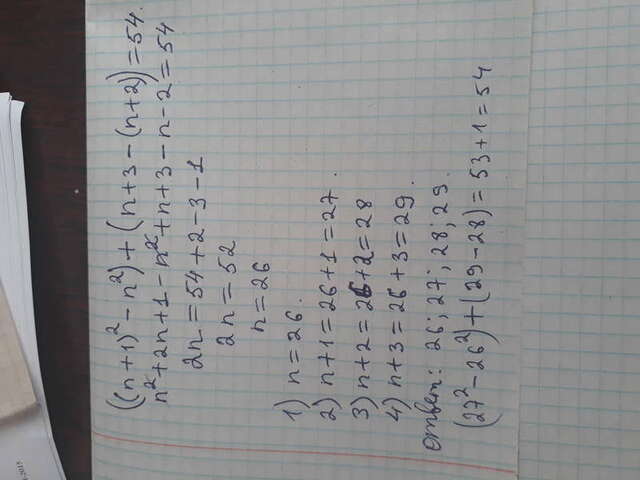 -2015
((n+1)² - n²) + (n+3 - (n+2)) = 54.
n² + 2n + 1 - n² + n + 3 - n - 2 = 54
2n = 54 + 2 - 3 - 1
2n = 52
n = 26
1) n = 26.
2) n+1 = 26+1 = 27.
3) n+2 = 26+2 = 28
4) n+3 = 26+3 = 29.
ответ: 26; 27; 28; 29.
(27² - 26²) + (29 - 28) = 53 + 1 = 54